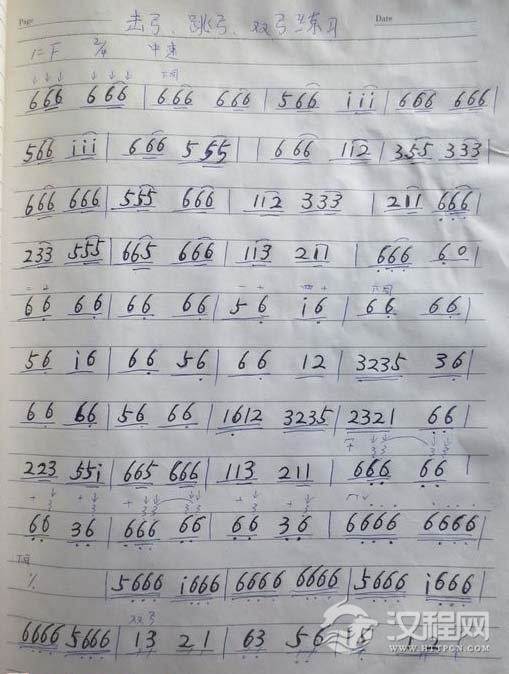 Page Date
击弓、跳弓、双弓练习
1=F 2/4 中速
下同
666 666 | 666 666 | 566 iii | 666 666 |
566 iii | 666 555 | 666 112 | 355 333 |
666 666 | 555 666 | 112 333 | 211 666 |
233 555 | 665 666 | 113 211 | 666 60 |
下同
66 66 | 66 66 | 56 i6 | 66 66 |
56 i6 | 66 56 | 66 12 | 3235 36 |
66 66 | 56 66 | 1612 3235 | 2321 66 |
223 55i | 665 666 | 113 211 | 666 66 |
66 36 | 666 66 | 66 36 | 6666 6666 |
下同
% | 5666 i666 | 6666 6666 | 5666 i666 |
双弓
6666 5666 | 13 21 | 63 56
汉程网
WWW.HTTPCN.COM